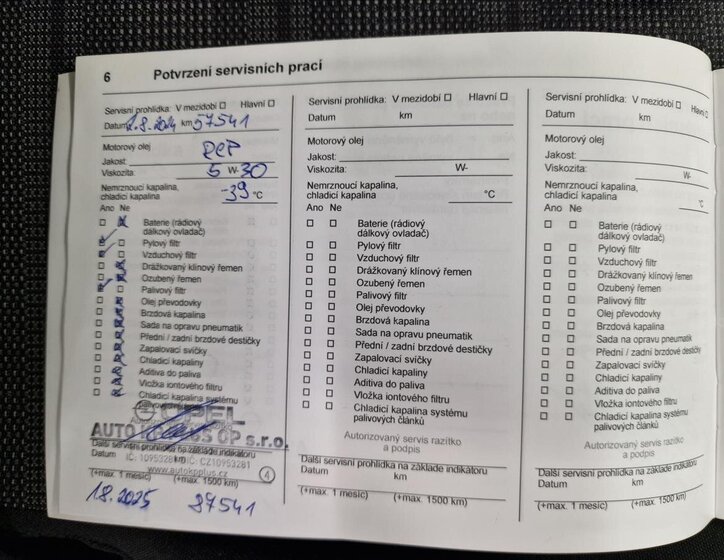 6 Potvrzení servisních prací
Servisní prohlídka: V mezidobí Hlavní
Datum 2.8.2024 km 57541
Motorový olej
Jakost:
Viskozita: 5 W- 30
Nemrznoucí kapalina,
chladicí kapalina -39 °C
Ano Ne
Baterie (rádiový
dálkový ovladač)
Pylový filtr
Vzduchový filtr
Drážkovaný klínový řemen
Ozubený řemen
Palivový filtr
Olej převodovky
Brzdová kapalina
Sada na opravu pneumatik
Přední / zadní brzdové destičky
Zapalovací svíčky
Chladicí kapaliny
Aditiva do paliva
Vložka iontového filtru
Chladicí kapalina systému
palivových článků
OPEL
AUTO OP s.r.o.
Další servisní prohlídka na základě indikátoru
IČ: 10953281 DIČ: CZ10953281
www.autokpplus.cz
4
(+max. 1 měsíc) (+max. 1500 km)
1.8.2025 87541
Servisní prohlídka: V mezidobí Hlavní
Datum km
Motorový olej
Jakost:
Viskozita: W-
Nemrznoucí kapalina,
chladicí kapalina °C
Ano Ne
Baterie (rádiový
dálkový ovladač)
Pylový filtr
Vzduchový filtr
Drážkovaný klínový řemen
Ozubený řemen
Palivový filtr
Olej převodovky
Brzdová kapalina
Sada na opravu pneumatik
Přední / zadní brzdové destičky
Zapalovací svíčky
Chladicí kapaliny
Aditiva do paliva
Vložka iontového filtru
Chladicí kapalina systému
palivových článků
Autorizovaný servis razítko
a podpis
Další servisní prohlídka na základě indikátoru
Datum km
(+max. 1 měsíc) (+max. 1500 km)
Servisní prohlídka: V mezidobí Hlavní
Datum km
Motorový olej
Jakost:
Viskozita: W-
Nemrznoucí kapalina,
chladicí kapalina °C
Ano Ne
Baterie (rádiový
dálkový ovladač)
Pylový filtr
Vzduchový filtr
Drážkovaný klínový řemen
Ozubený řemen
Palivový filtr
Olej převodovky
Brzdová kapalina
Sada na opravu pneumatik
Přední / zadní brzdové destičky
Zapalovací svíčky
Chladicí kapaliny
Aditiva do paliva
Vložka iontového filtru
Chladicí kapalina systému
palivových článků
Autorizovaný servis razítko
a podpis
Další servisní prohlídka na základě indikátoru
Datum km
(+max. 1 měsíc) (+max. 1500 km)